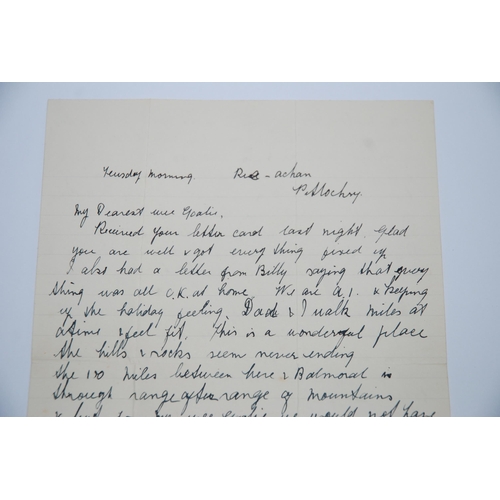 Teusday morning Ric-achan
Pitlochry
My Dearest wee
Received your letter card last night. Glad
you are well & got every thing fixed up
I also had a letter from Billy saying that every
thing was all O.K. at home. We are A.1. & keeping
up the holiday feeling. Dad & I walk miles at
a time & feel fit. This is a wonderful place
the hills & rocks seem never ending
the 100 miles between here & Balmoral is
through range after range of mountains
we would not have